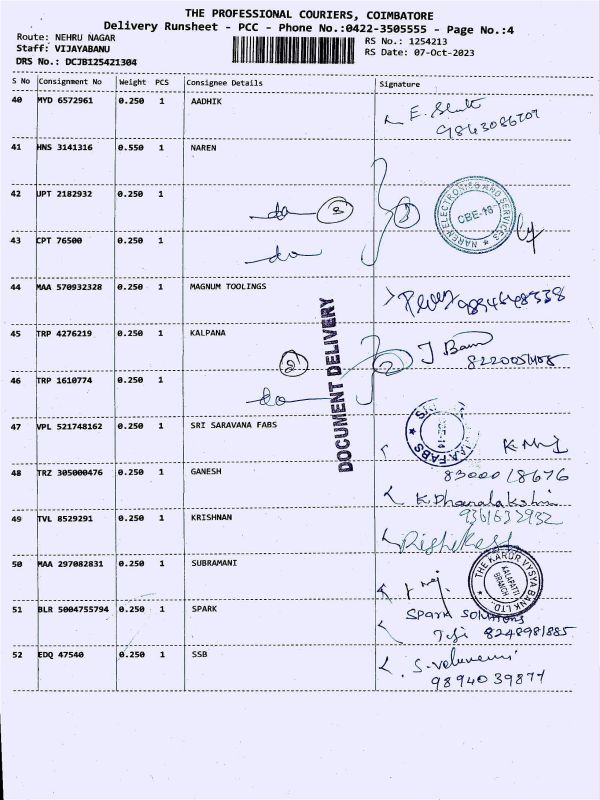 THE PROFESSIONAL COURIERS, COIMBATORE
Delivery Runsheet - PCC - Phone No.:0422-3505555 - Page No.:4
Route: NEHRU NAGAR
RS No.: 1254213
Staff: VIJAYABANU
RS Date: 07-Oct-2023
DRS No.: DCJB125421304
S No Consignment No Weight PCS Consignee Details Signature
40 MYD 6572961 0.250 1 AADHIK
41 HNS 3141316 0.550 1 NAREN
42 JPT 2182932 0.250 1
do 3 3
NAREN ELECTRONICS AND SERVICES
CBE-18
43 CPT 76500 0.250 1
do
44 MAA 570932328 0.250 1 MAGNUM TOOLINGS
45 TRP 4276219 0.250 1 KALPANA
2 2
46 TRP 1610774 0.250 1
do
DOCUMENT DELIVERY
47 VPL 521748162 0.250 1 SRI SARAVANA FABS
48 TRZ 305000476 0.250 1 GANESH
83000 18676
K. Dhanalakshmi
49 TVL 8529291 0.250 1 KRISHNAN
9361633932
50 MAA 297082831 0.250 1 SUBRAMANI
THE KARUR VYSYA BANK LTD.
KALAPATTI BRANCH
51 BLR 5004755794 0.250 1 SPARK
Spark Solutions
8248981885
52 EDQ 47540 0.250 1 SSB
98940 39877